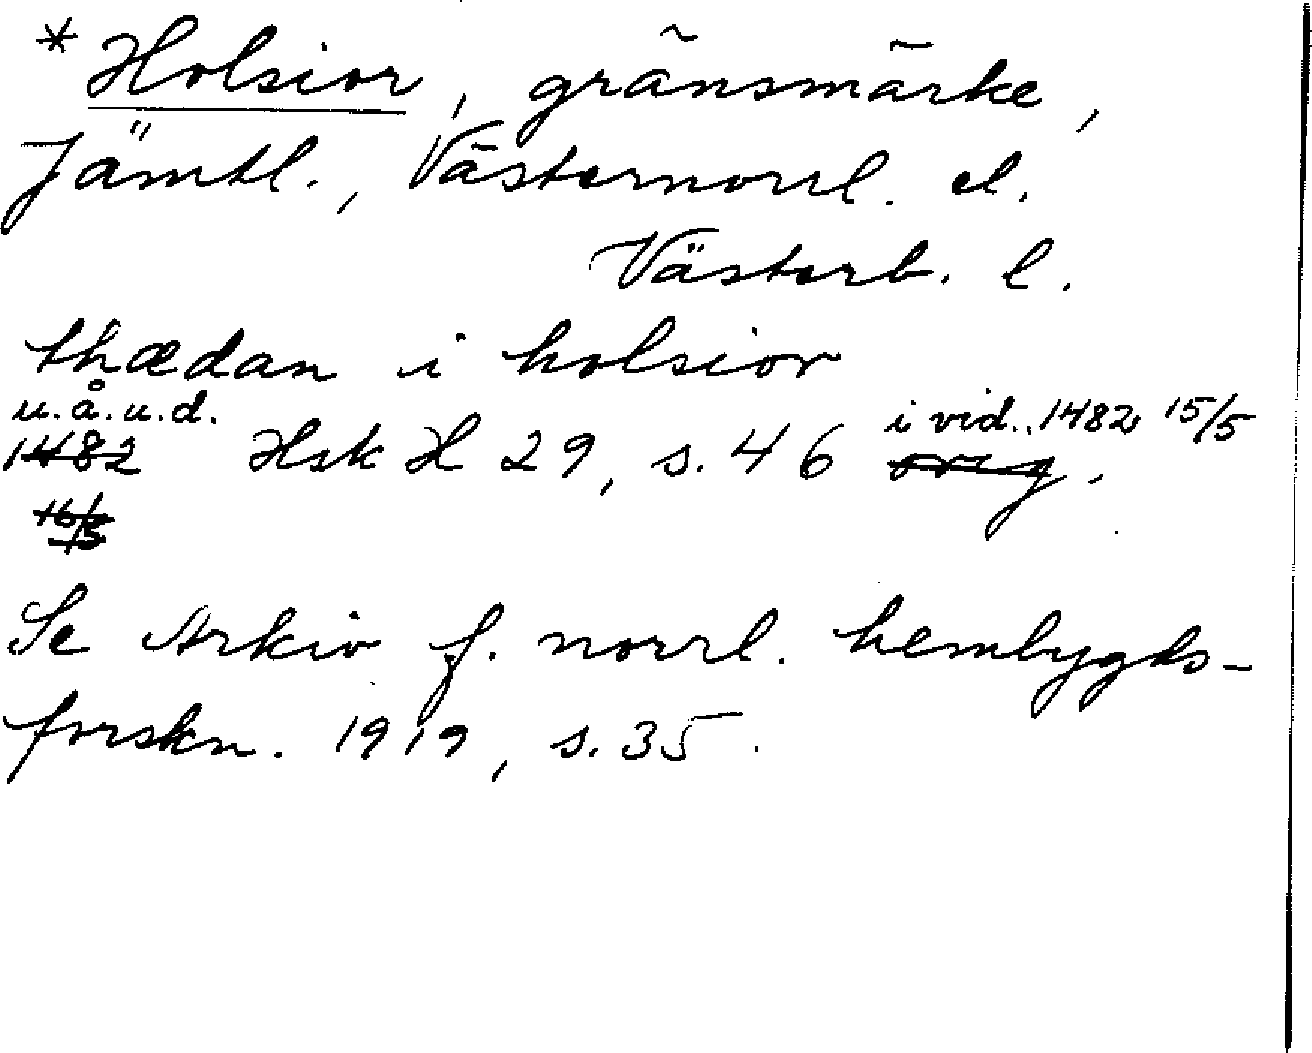 * Holsior, gränsmärke,
Jämtl., Västernorrl. el.
Västerb. l.
thædan i holsior
u.å.u.d.
1482 Hsk H 29, s. 46 i vid. 1482 15/5
orig.
16/5
Se Arkiv f. norrl. hembygds-
forskn. 1919, s. 35.